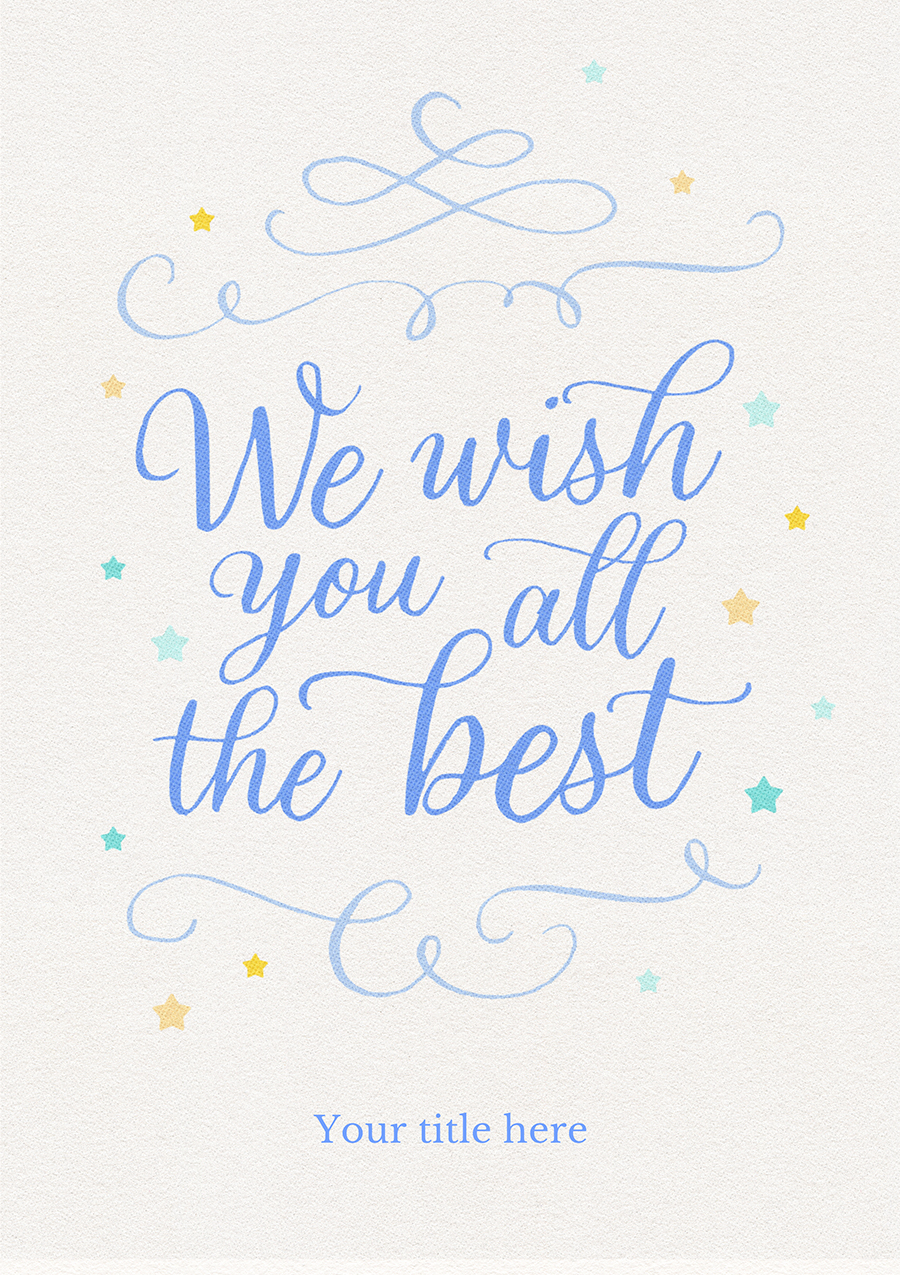 We wish
you all
the best
Your title here